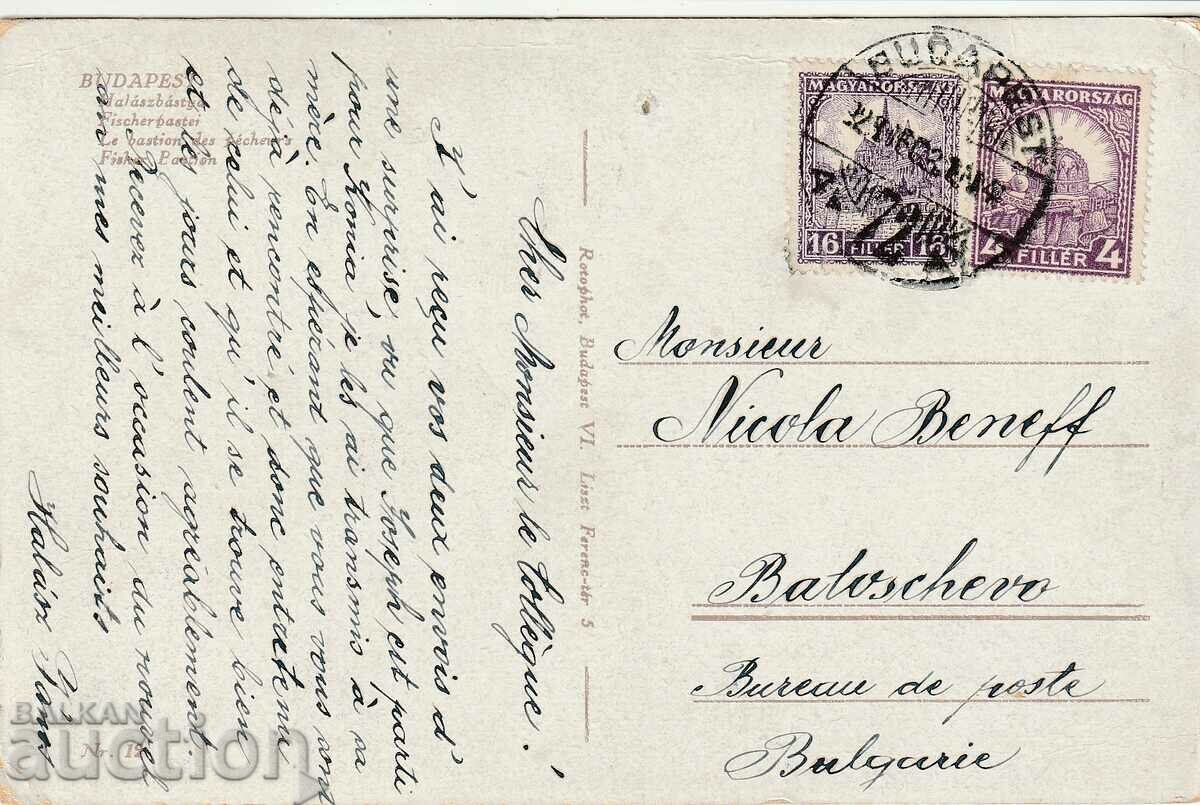 BUDAPEST
Halászbástya
Fischerbastei
Le bastion des pécheurs
Fisher Bastion
Cher Monsieur le Collègue!
J'ai reçu vos deux envois d'
une surprise, vu que Joseph est parti
pour Konia, je les ai transmis à sa
mère. En espérant que vous vous vont
déjà rencontré et donc entretenu
de celui et qu'il se trouve bien
et les jours coulent agréablement.
Recevez à l'occasion du nouvel
an mes meilleurs souhaits
Halász János
Nr. 12
Rotophot, Budapest VI. Liszt Ferenc-tér 5
BUDAPEST
72
MAGYARORSZÁG
16 FILLÉR 16
MAGYARORSZÁG
4 FILLÉR 4
Monsieur
Nicola Beneff
Batoschevo
Bureau de poste
Bulgarie
BALKAN
auction